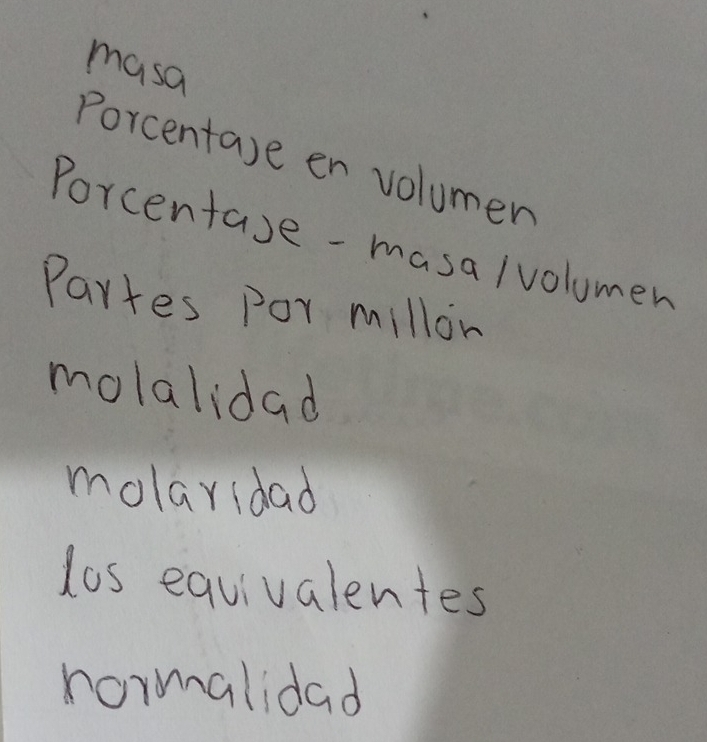 masa
Porcentaje en volumen
Porcentaje - masa/volumen
Partes por millón
molalidad
molaridad
los equivalentes
normalidad